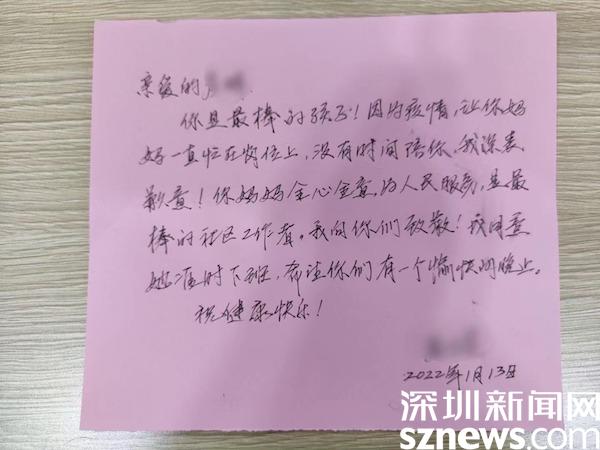 亲爱的
你是最棒的孩子！因为疫情，让你妈
妈一直忙在岗位上，没有时间陪你，我深表
歉意！你妈妈全心全意为人民服务，是最
棒的社区工作者，我向你们致敬！我同意
她准时下班，希望你们有一个愉快的晚上。
祝健康快乐！
2022年1月13日
深圳新闻网
sznews.com